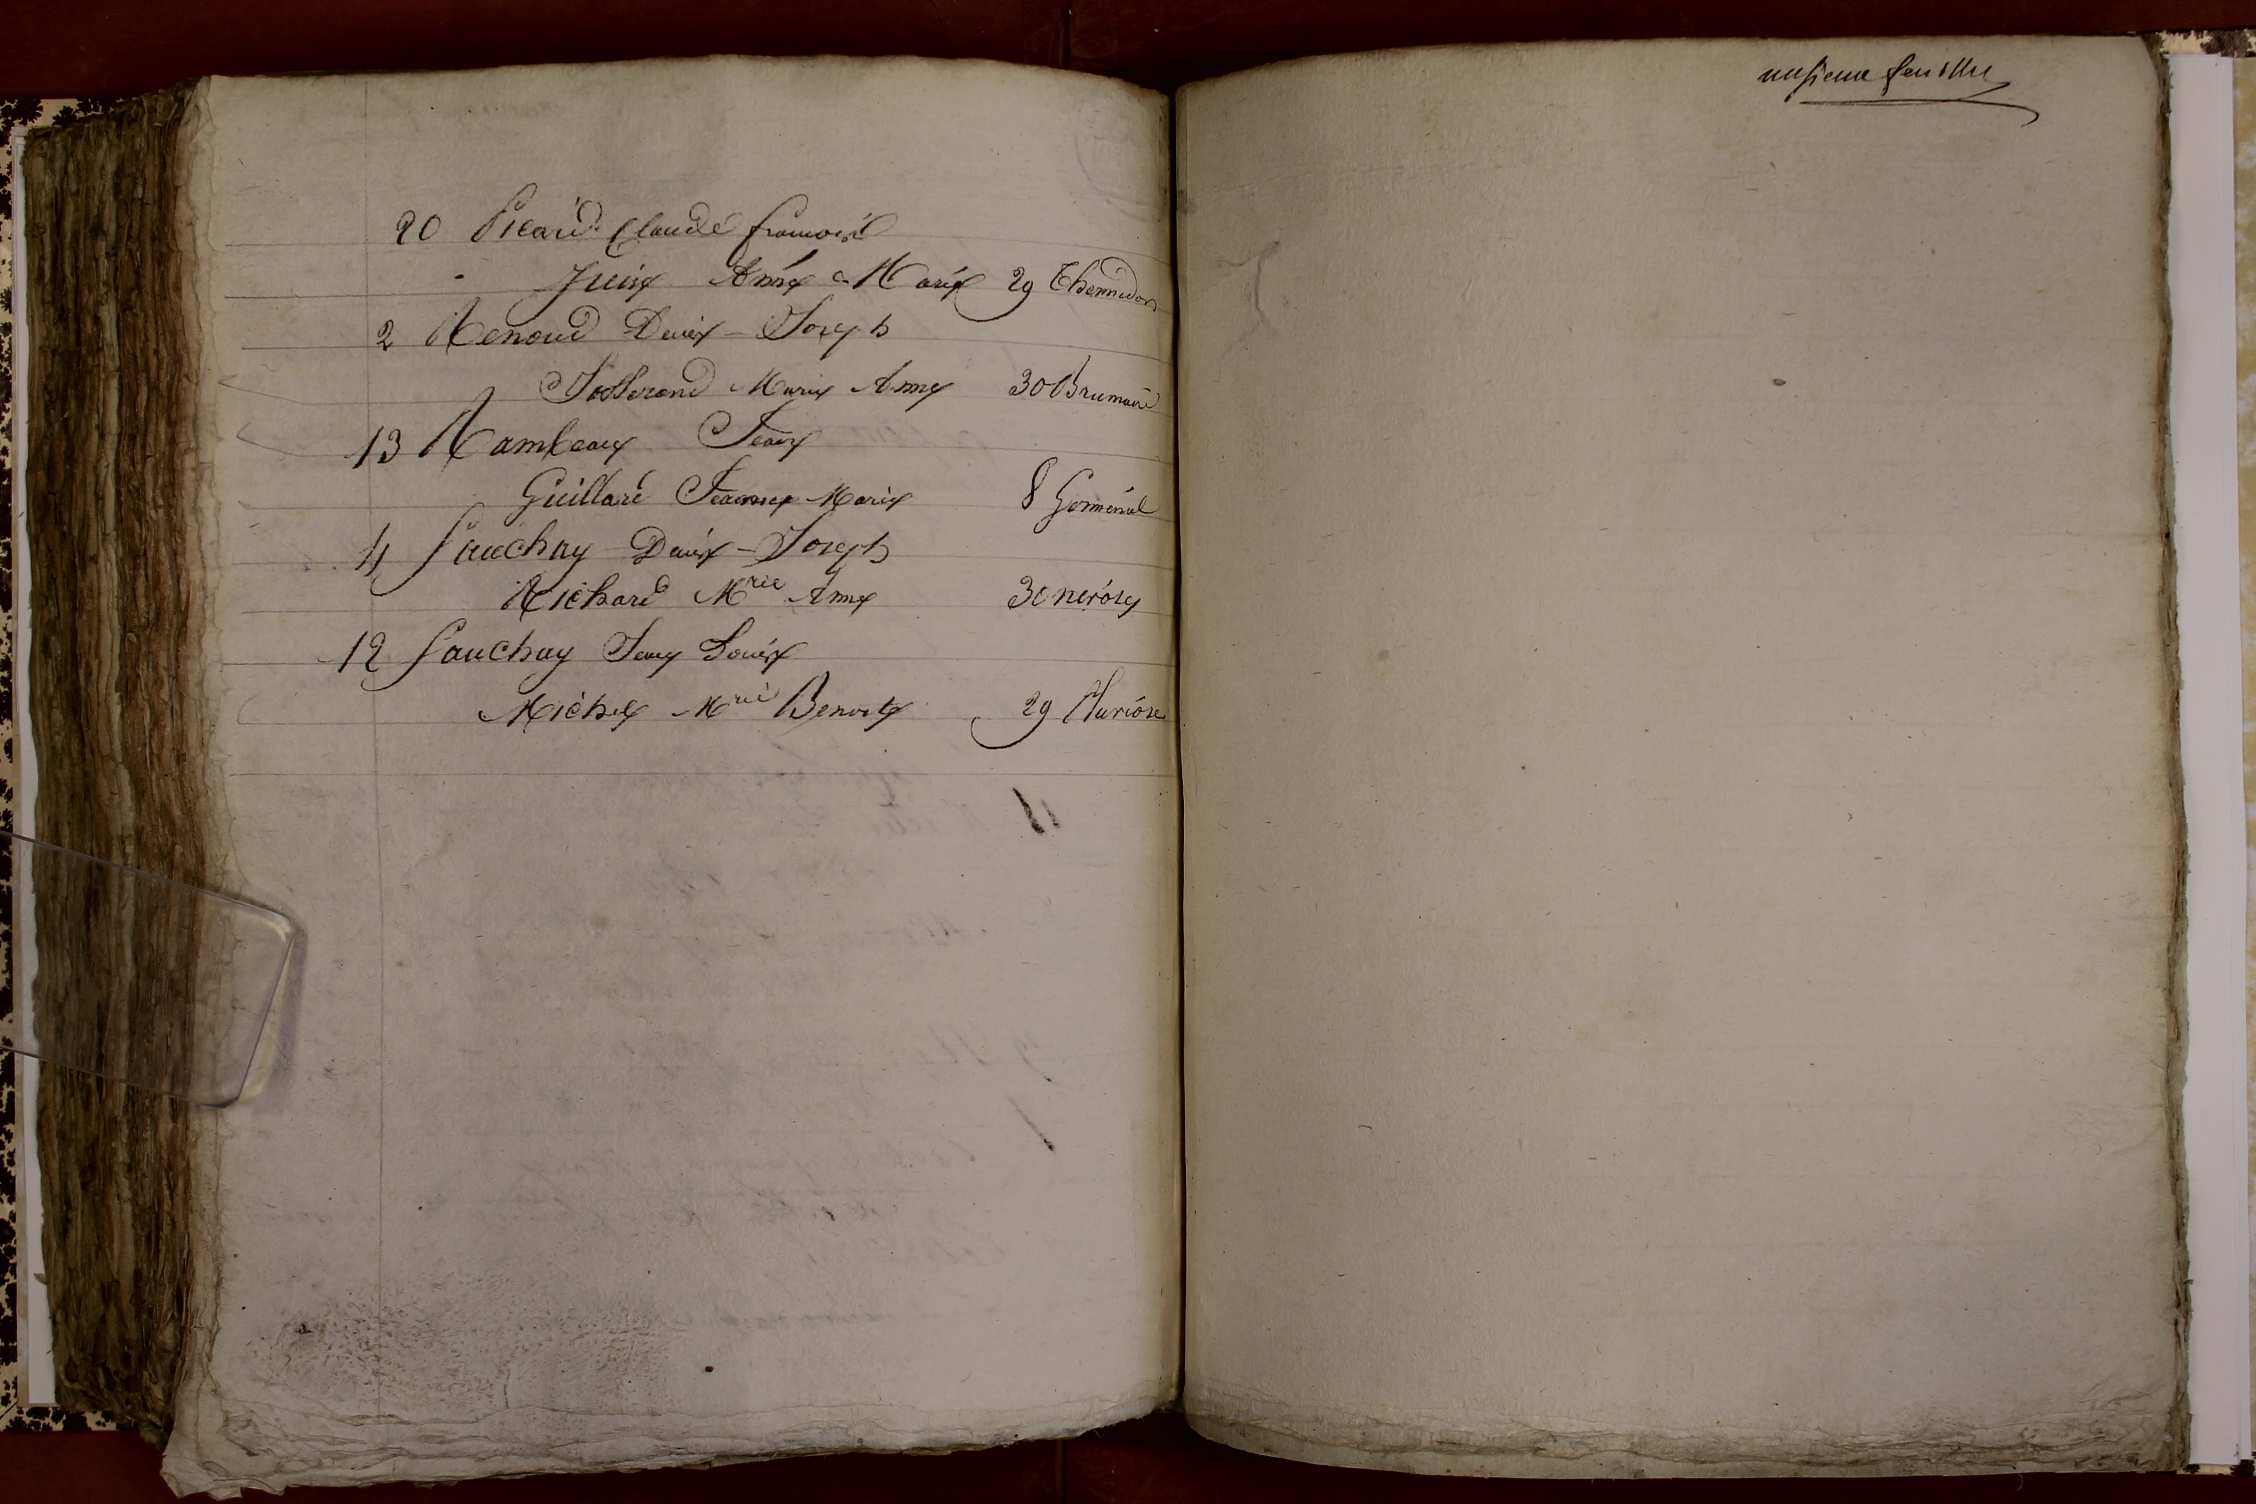 20 Picard Claude françois
Juiy Anne Marie 29 Thermidor
2 Renoud Denis Joseph
Josserand Marie Anne 30 Brumaire
13 Rambaux Jean
Guillard Jeanne Marie 8 Germinal
4 Sauchay Denis Joseph
Richard Mrie Anne 30 nivose
12 Sauchay Jean Louis
Michel Mrie Benoite 29 Pluviose
feuillet